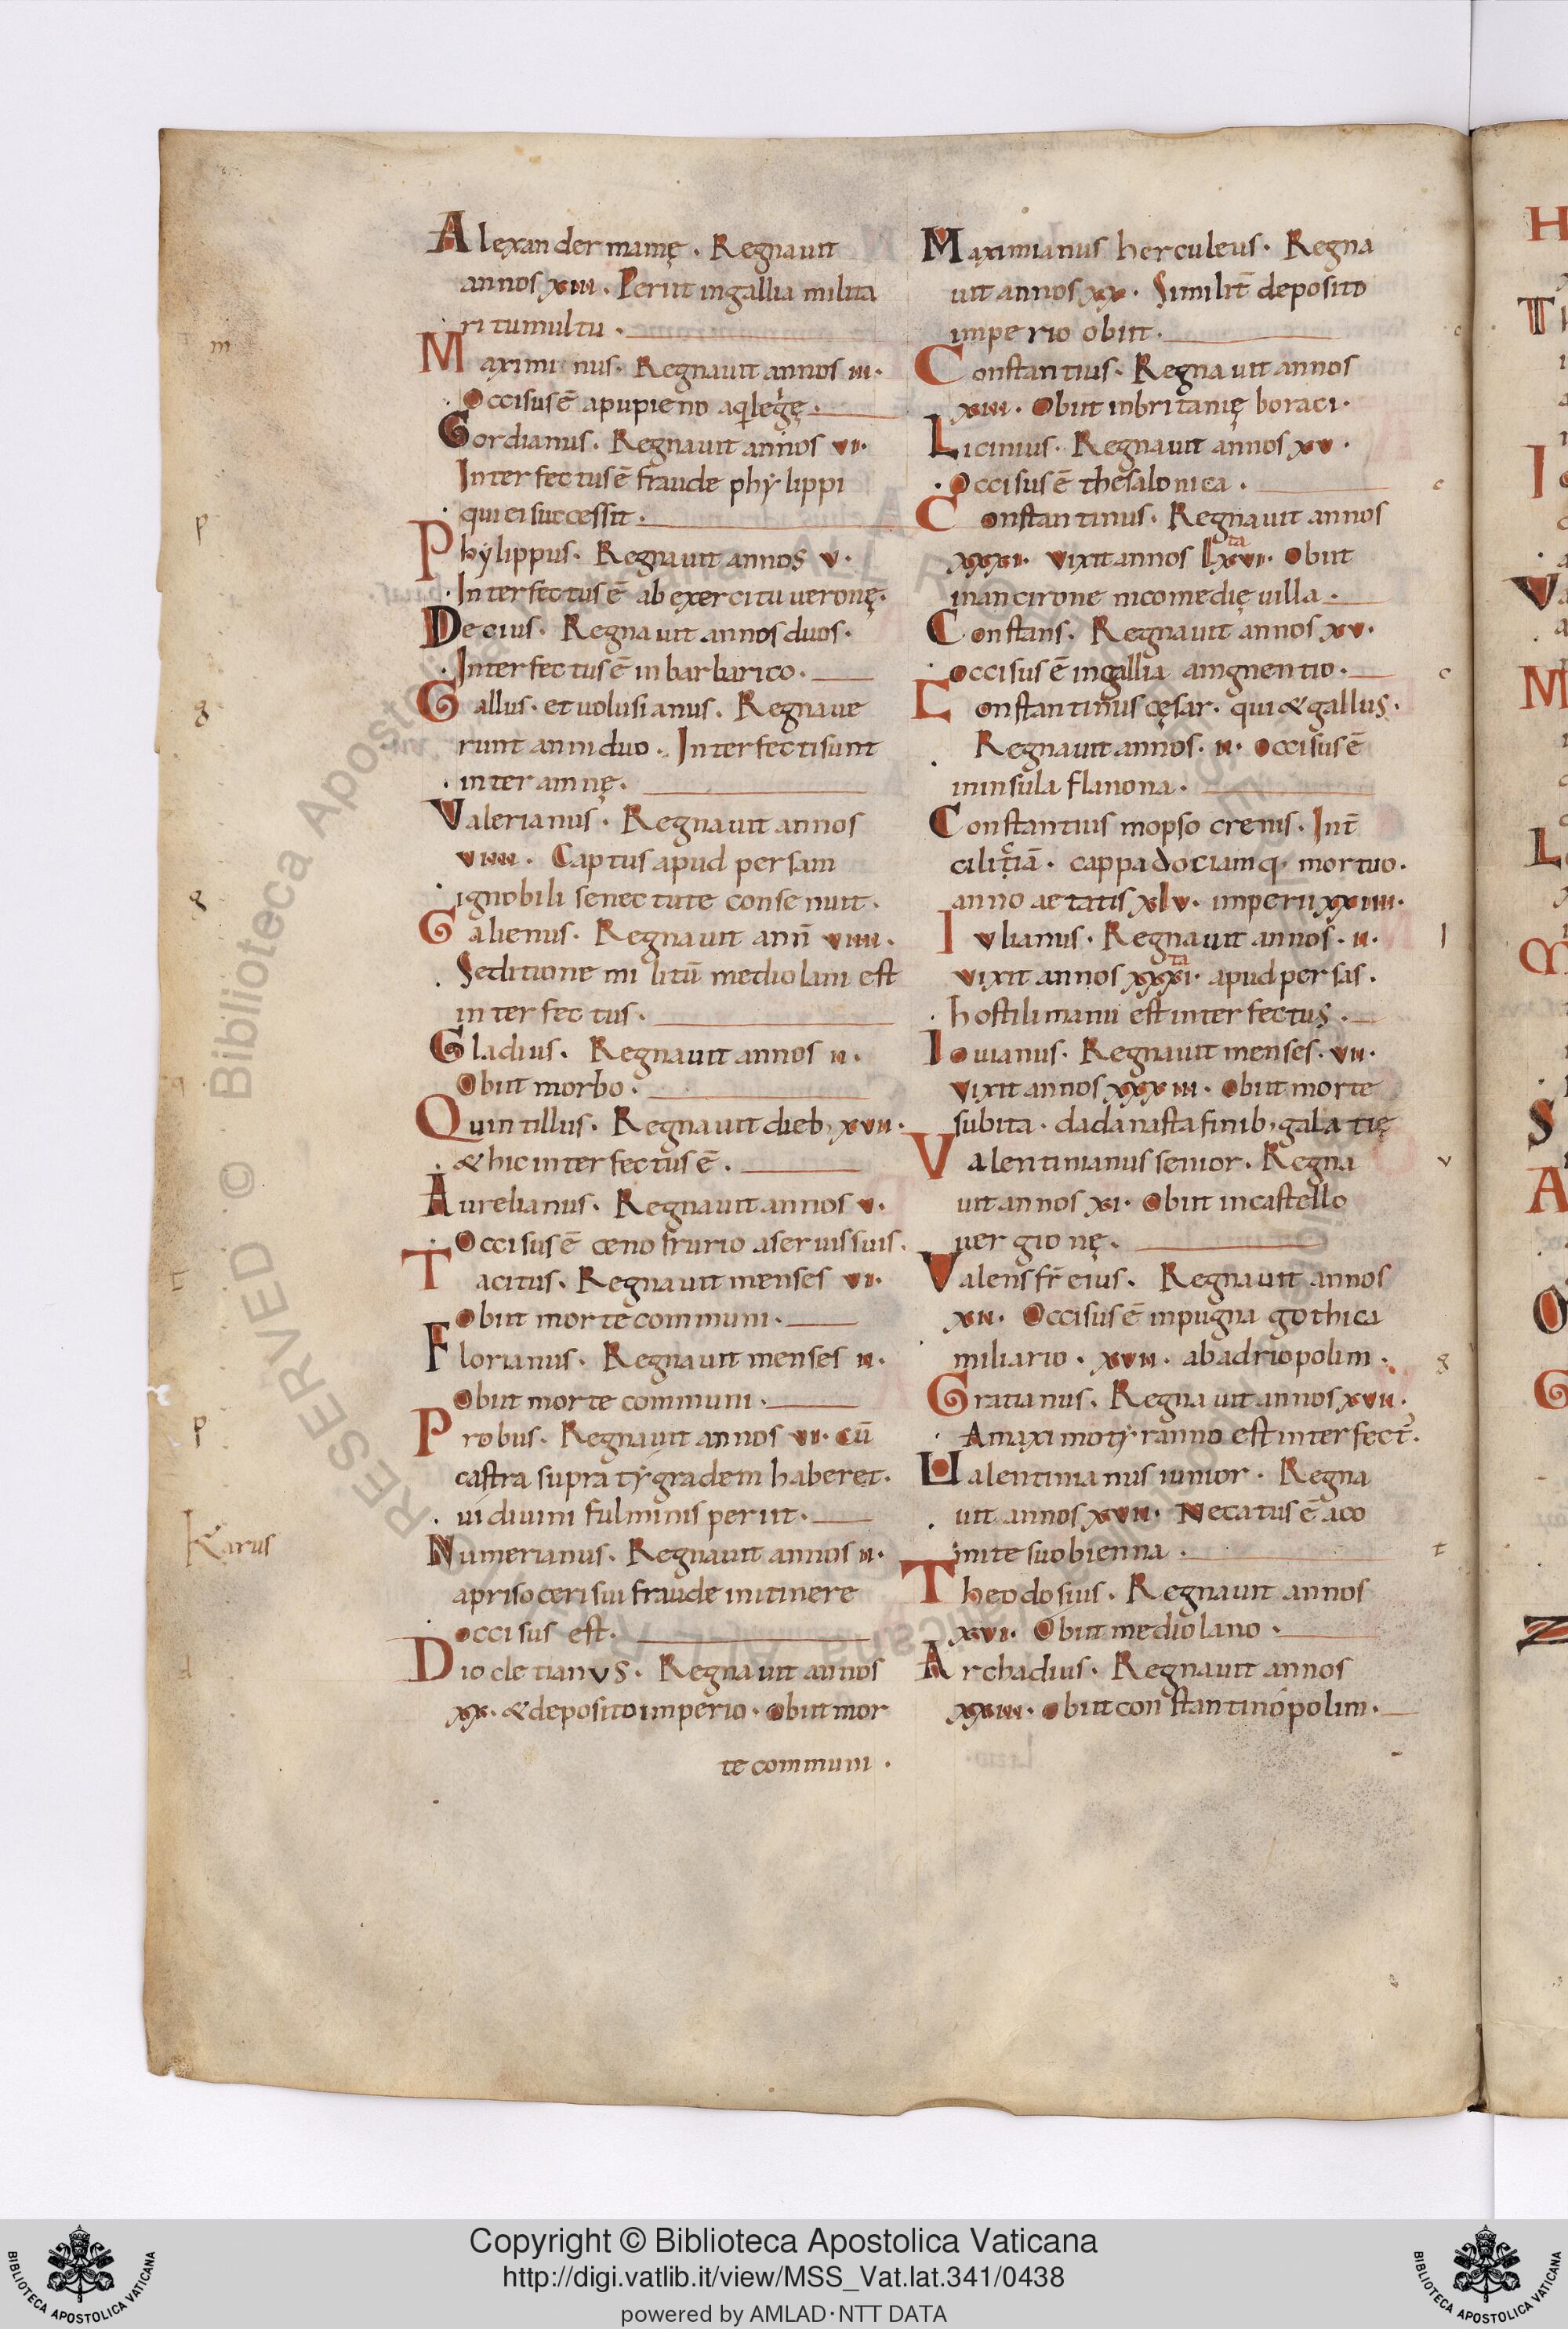 Alexander mamę. Regnauit
annos xiii. Periit in gallia milita
ri tumultu.
m
Maximi nus. Regnauit annos iii.
Occisus ē a pupieno aqlegę.
Gordianus. Regnauit annos vi.
Interfectus ē fraude phẏlippi
qui ei successit.
p
Phẏlippus. Regnauit annos v.
Interfectus ē ab exercitu ueronę.
Decius. Regnauit annos duos.
Interfectus ē in barbarico.
g
Gallus. et uolusianus. Regnaue
runt anni duo. Interfecti sunt
inter amnę.
Valerianus. Regnauit annos
viiii. Captus apud persam
g
ignobili senectute consenuit.
Galienus. Regnauit anñ viiii.
Seditione militū mediolani est
interfectus.
Gladius. Regnauit annos ii.
Obiit morbo.
q
Quintillus. Regnauit dieb; xvii.
& hic interfectus ē.
Aurelianus. Regnauit annos v.
Occisus ē ceno frurio a seruis suis.
t
Tacitus. Regnauit menses vi.
Obiit morte communi.
Florianus. Regnauit menses ii.
Obiit morte communi.
p
Probus. Regnauit annos vi. cū
castra supra tẏgradem haberet.
ui diuini fulminis periit.
Karus
Numerianus. Regnauit annos ii.
apri soceri sui fraude in itinere
occisus est.
d
Diocletianus. Regnauit annos
xx. & deposito imperio. obiit mor
te communi.
Maximianus herculeus. Regna
uit annos xx. Similit̄ deposito
imperio obiit.
c
Constantius. Regnauit annos
xiii. Obiit in britanię boraci.
Licinius. Regnauit annos xv.
Occisus ē thesalonica.
c
Constantinus. Regnauit annos
ta
xxxi. vixit annos lxvi. Obiit
in ancirone nicomedię uilla.
Constans. Regnauit annos xv.
occisus ē in gallia amgnentio.
c
Constantinus cęsar. qui & gallus.
Regnauit annos. ii. Occisus ē
in insula flanona.
Constantius mopso crenis. Int̄
cilitiā. cappadociamq. mortuo.
anno aetatis xlv. imperii xxiiii.
I
Iulianus. Regnauit annos. ii.
ta
vixit annos xxxi. apud persas.
hostili manu est interfectus.
Iouianus. Regnauit menses. vii.
vixit annos xxxiii. obiit morte
subita. dadanasta finib; galatię
v
Valentinianus senior. Regna
uit annos xi. Obiit in castello
uergionę.
Valens fr̄ eius. Regnauit annos
xii. Occisus ē in pugna gothica
miliario. xvii. ab adriopolim.
g
Gratianus. Regnauit annos xvii.
A maximo tẏranno est interfect̉.
Ualentinianus iunior. Regna
uit annos xvii. Necatus ē a co
mite suo bienna.
t
Theodosius. Regnauit annos
xvi. Obiit mediolano.
Archadius. Regnauit annos
xxiii. obiit constantinopolim.
Copyright © Biblioteca Apostolica Vaticana
http://digi.vatlib.it/view/MSS_Vat.lat.341/0438
powered by AMLAD·NTT DATA
BIBLIOTECA APOSTOLICA VATICANA
BIBLIOTECA APOSTOLICA VATICANA